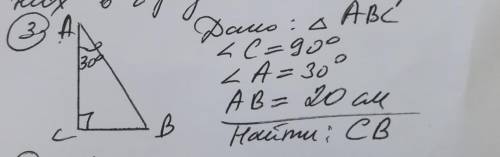 ③
A
30°
C
B
Дано: △ ABC
∠C = 90°
∠A = 30°
AB = 20 см
Найти: CB